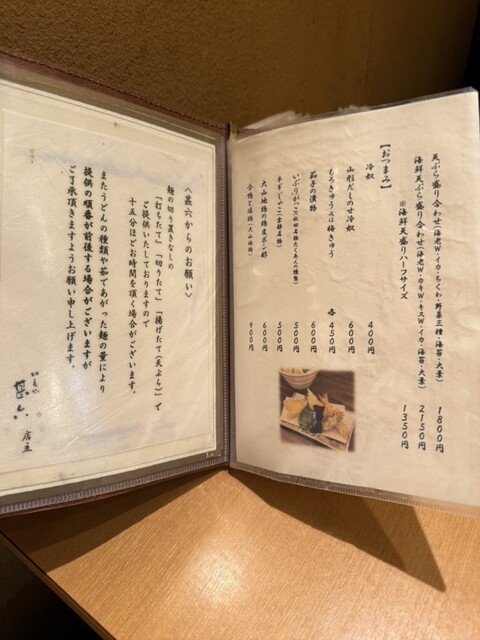 天ぷら盛り合わせ(海老W・イカ・ちくわ・野菜三種・海苔・大葉) 1800円
海鮮天ぷら盛り合わせ(海老W・カキW・キスW・イカ・海苔・大葉) 2150円
※海鮮天盛りハーフサイズ 1350円
【おつまみ】
冷奴 400円
山形だしのせ冷奴 600円
もろきゅう又は梅きゅう 各450円
茄子の漬物 600円
いぶりがっこ(秋田名物たくあんの燻製) 500円
ネギじゃこ(京都名物) 500円
大山地鶏の鶏皮ポン酢 600円
合鴨と塩鶏(大山地鶏) 900円
〈甚六からのお願い〉
麺の切り置きなしの
「打ちたて」「切りたて」「揚げたて(天ぷら)」で
ご提供いたしておりますので
十五分ほどお時間を頂く場合がございます。
またうどんの種類や茹であがった麺の量により
提供の順番が前後する場合がございますが
ご了承頂きますようお願い申し上げます。
甚六 店主